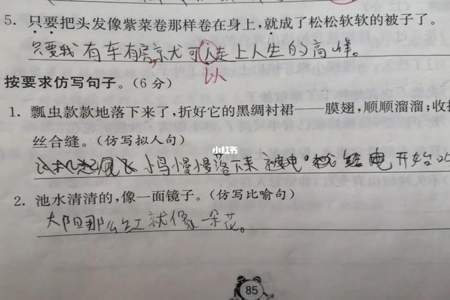 5. 只要把头发像紫菜卷那样卷在身上,就成了松松软软的被子了。
只要我有车有房就可人走上人生的高峰。
以
按要求仿写句子。(6分)
1. 瓢虫款款地落下来了,折好它的黑绸衬裙——膜翅,顺顺溜溜;收
丝合缝。(仿写拟人句)
小红书
小鸟慢慢落下来 电 电开始
2. 池水清清的,像一面镜子。(仿写比喻句)
太阳那么红就像一朵花。
85